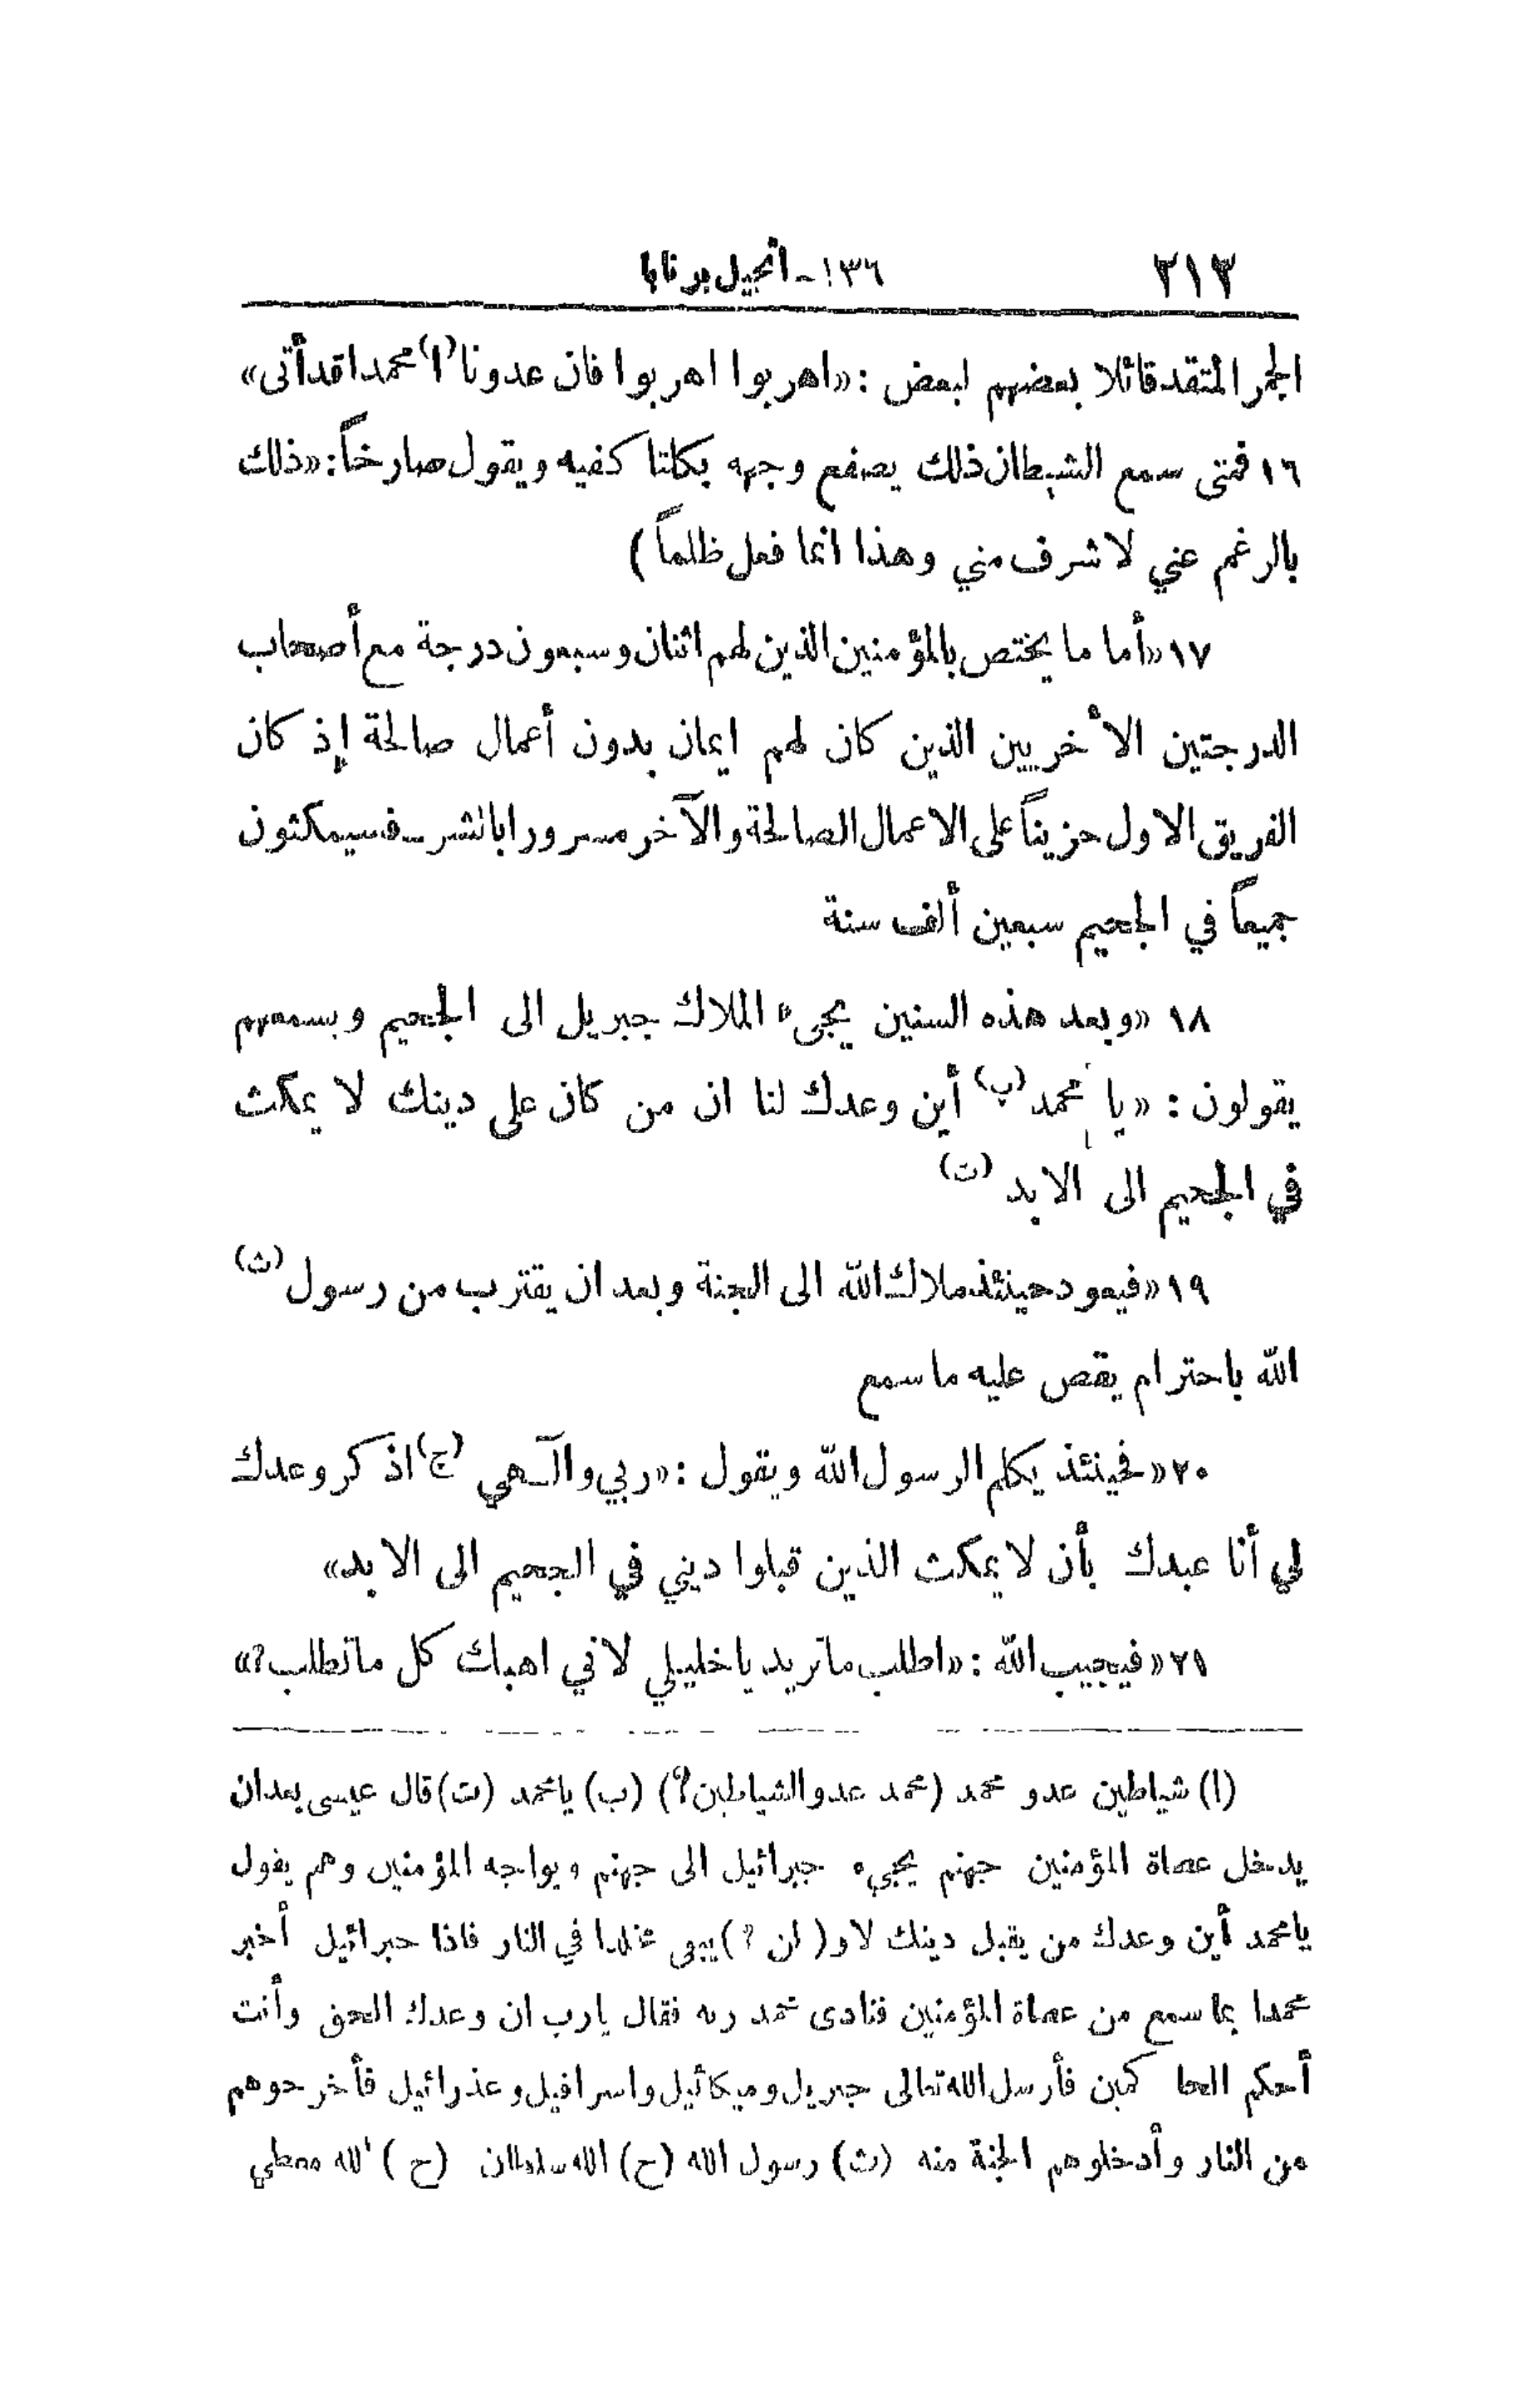 ٢١٣ ١٣٦ - انجيل برنابا
الجمر المتقد قائلا بعضهم لبعض : «اهربوا اهربوا فان عدونا (١) محمدا قد أتى»
١٦ فمتى سمع الشيطان ذلك يصفع وجهه بكلتا كفيه ويقول صارخاً : «ذلك
بالرغم عني لاشرف مني وهذا انما فعل ظلماً )
١٧ «أما ما يختص بالمؤمنين الذين لهم اثنان وسبعون درجة مع أصحاب
الدرجتين الأخريين الذين كان لهم ايمان بدون أعمال صالحة إذ كان
الفريق الاول حزيناً على الاعمال الصالحة والآخر مسرورا بالشر ـ فسيمكثون
جميعاً في الجحيم سبعين ألف سنة
١٨ «وبعد هذه السنين يجيء الملاك جبريل الى الجحيم ويسمعهم
يقولون : «يا محمد (ب) أين وعدك لنا ان من كان على دينك لا يمكث
في الجحيم الى الابد (ت)
١٩ «فيعود حينئذ ملاك الله الى الجنة وبعد ان يقترب من رسول (ث)
الله باحترام يقص عليه ما سمع
٢٠ «فحينئذ يكلم الرسول الله ويقول : «ربي وآلـهي (ج) اذكر وعدك
لي أنا عبدك بأن لا يمكث الذين قبلوا ديني في الجحيم الى الابد»
٢١ «فيجيب الله : «اطلب ما تريد يا خليلي لاني اهبك كل ما تطلب؟»
(١) شياطين عدو محمد (محمد عدو الشياطين؟) (ب) يا محمد (ت) قال عيسى بعد ان
يدخل عصاة المؤمنين جهنم يجيء جبرائيل الى جهنم ويواجه المؤمنين وهم يقول
يا محمد أين وعدك من يقبل دينك لاو (لن ؟) يبقى مخلدا في النار فاذا جبرائيل أخبر
محمدا بما سمع من عصاة المؤمنين فنادى محمد ربه فقال يارب ان وعدك الحق وأنت
أحكم الحا كمين فأرسل الله تعالى جبريل وميكائيل واسرافيل وعذرائيل فأخرجوهم
من النار وأدخلوهم الجنة منه (ث) رسول الله (ح) الله سلطان (ح) الله معطي